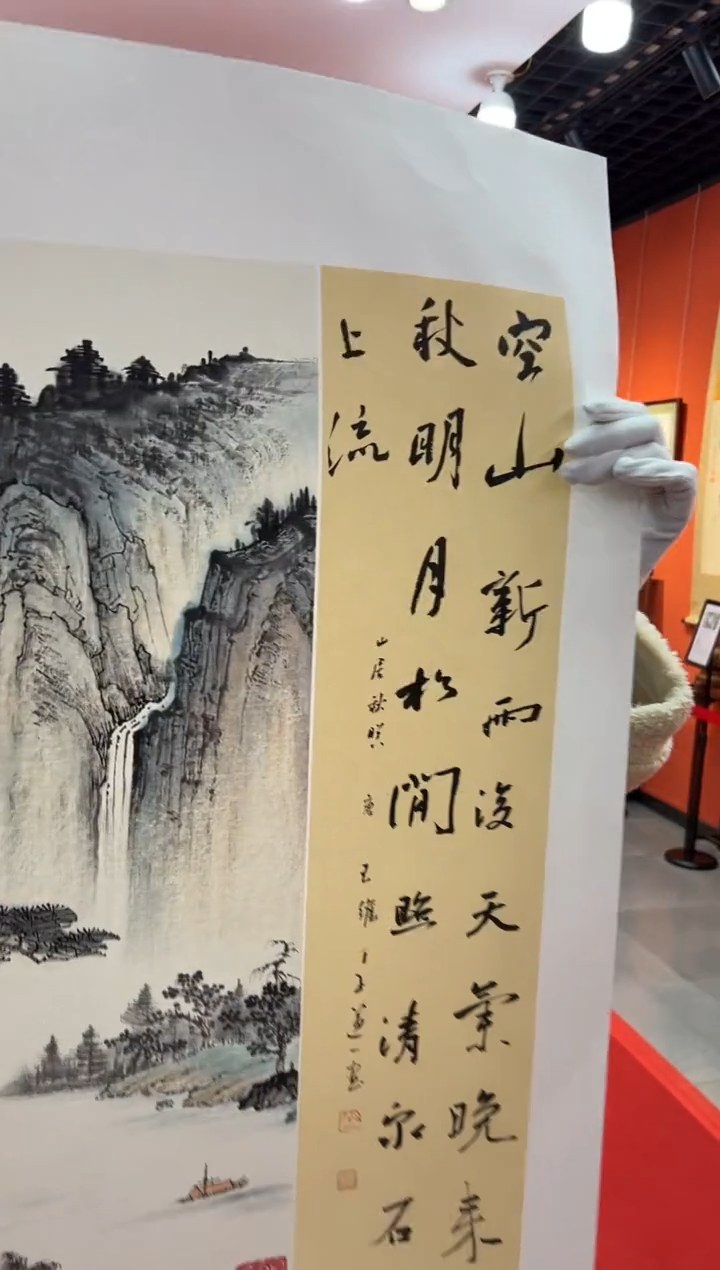 空山新雨後天氣晚来
秋明月松間照清泉石
上流
山居秋暝 唐 王維